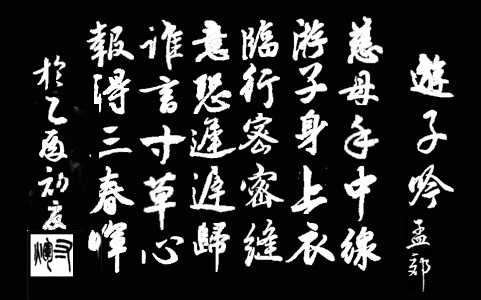 遊子吟 孟郊
慈母手中線
游子身上衣
臨行密密縫
意恐遲遲歸
誰言寸草心
報得三春暉
於乙酉初夏